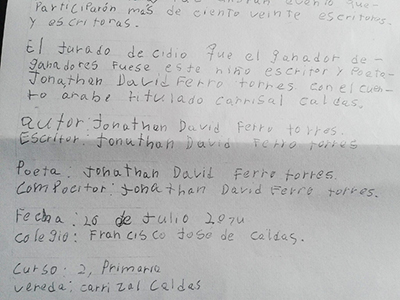 Participarón más de ciento veinte escritores
y escritoras.
El jurado de cidio que el ganador de
ganadores fuese este niño escritor y Poeta
Jonathan David Ferro torres. con el cuen-
to arabe titulado carrisal caldas.
autor: Jonathan David Ferro torres.
Escritor: Jonathan David Ferro torres
Poeta: Jonathan David Ferro torres.
comPocitor: Jonathan David Ferro torres.
Fecha: de Julio
colegio: Francisco Jose de caldas.
curso: 2, Primaria
vereda: carrizal caldas